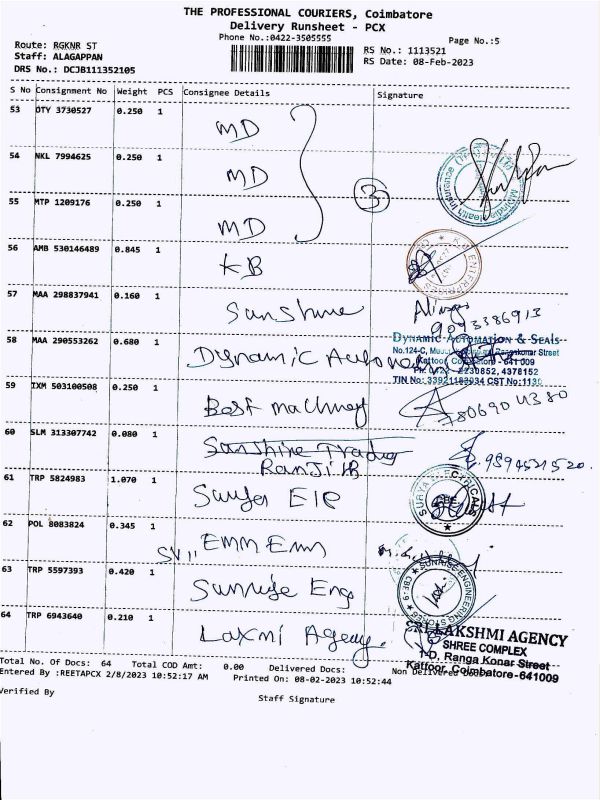 THE PROFESSIONAL COURIERS, Coimbatore
Delivery Runsheet - PCX
Phone No.:0422-3505555
Page No.:5
Route: RGKNR ST
RS No.: 1113521
Staff: ALAGAPPAN
RS Date: 08-Feb-2023
DRS No.: DCJB111352105
S No Consignment No Weight PCS Consignee Details Signature
53 OTY 3730527 0.250 1
MD
54 NKL 7994625 0.250 1
MD
3
55 MTP 1209176 0.250 1
MD
56 AMB 530146489 0.845 1
KB
57 MAA 298837941 0.160 1
Sunshine
58 MAA 290553262 0.680 1
Dynamic
DYNAMIC AUTOMATION & SEALS
Kattoor, Coimbatore - 641 009
59 IXM 503100508 0.250 1
Best machinery
60 SLM 313307742 0.080 1
Sunshine Trading
61 TRP 5824983 1.070 1
Surya Ele
62 POL 8083824 0.345 1
EMM Emm
63 TRP 5597393 0.420 1
Sunrise Eng
SUNRISE ENGINEERING STORES
64 TRP 6943640 0.210 1
Laxmi Agency.
SRI LAKSHMI AGENCY
SHREE COMPLEX
Ranga Konar Street
Kattoor, Coimbatore-641009
Total No. Of Docs: 64 Total COD Amt: 0.00 Delivered Docs: Non Delivered Docs:
Entered By :REETAPCX 2/8/2023 10:52:17 AM Printed On: 08-02-2023 10:52:44
Verified By
Staff Signature